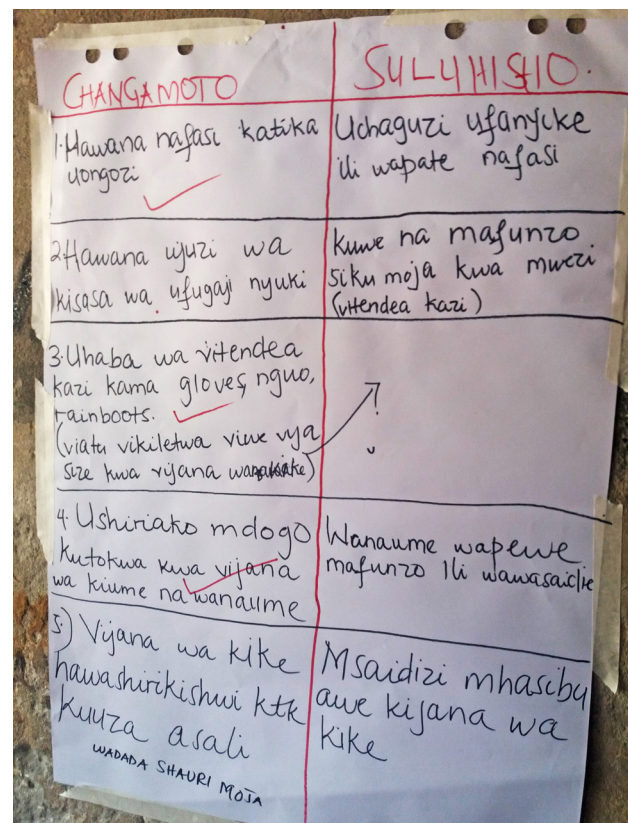 CHANGAMOTO
SULUHISHO.
1. Hawana nafasi katika
uongozi
Uchaguzi ufanyike
ili wapate nafasi
2. Hawana ujuzi wa
kisasa wa ufugaji nyuki
Kuwe na mafunzo
siku moja kwa mwezi
(vitendea kazi)
3. Uhaba wa vitendea
kazi kama gloves, nguo,
rainboots.
(viatu vikiletwa viwe vya
size kwa vijana wanawake)
4. Ushiriako mdogo
kutokwa kwa vijana
wa kiume na wanaume
Wanaume wapewe
mafunzo ili wawasaidie
5.) Vijana wa kike
hawashirikishwi ktk
kuuza asali
Msaidizi mhasibu
awe kijana wa
kike
WADADA SHAURI MOJA